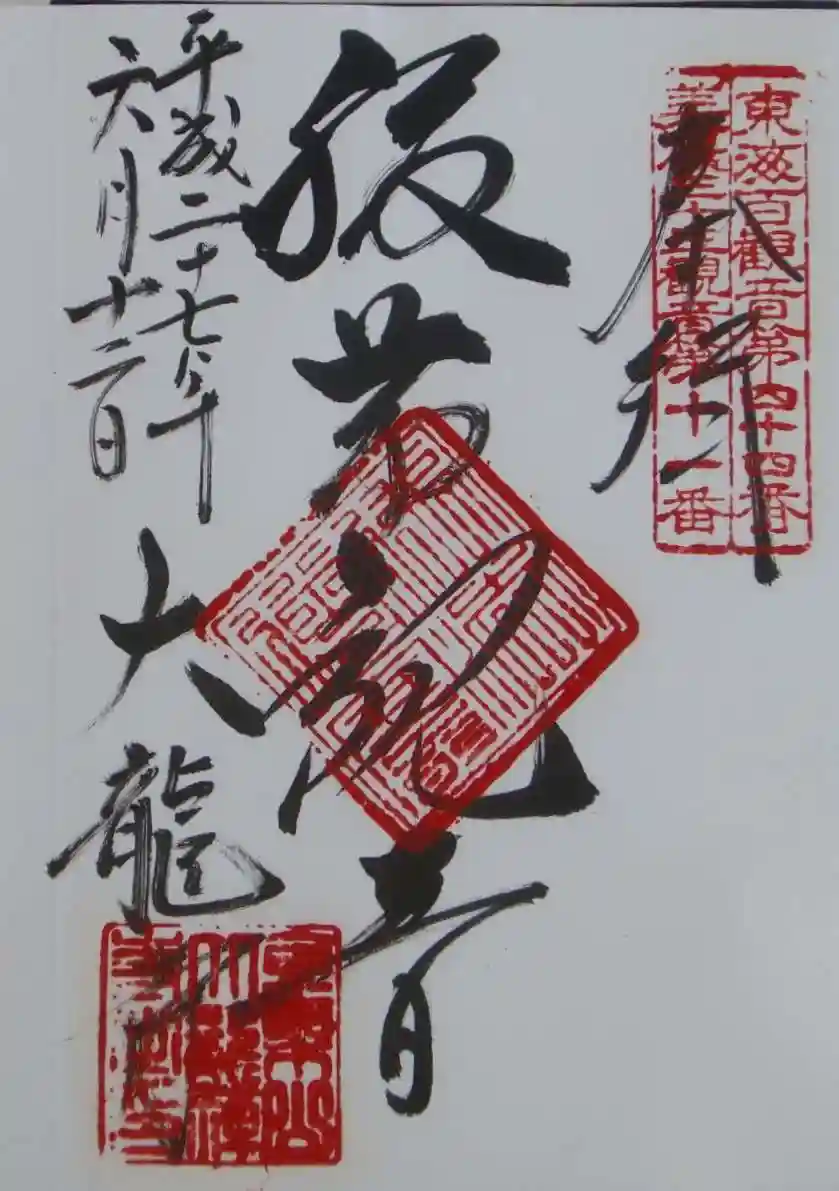 東海百観音第四十四番
美濃三十三観音第十一番
奉拝
腹帯観音
平成二十七年
六月十二日
大龍寺